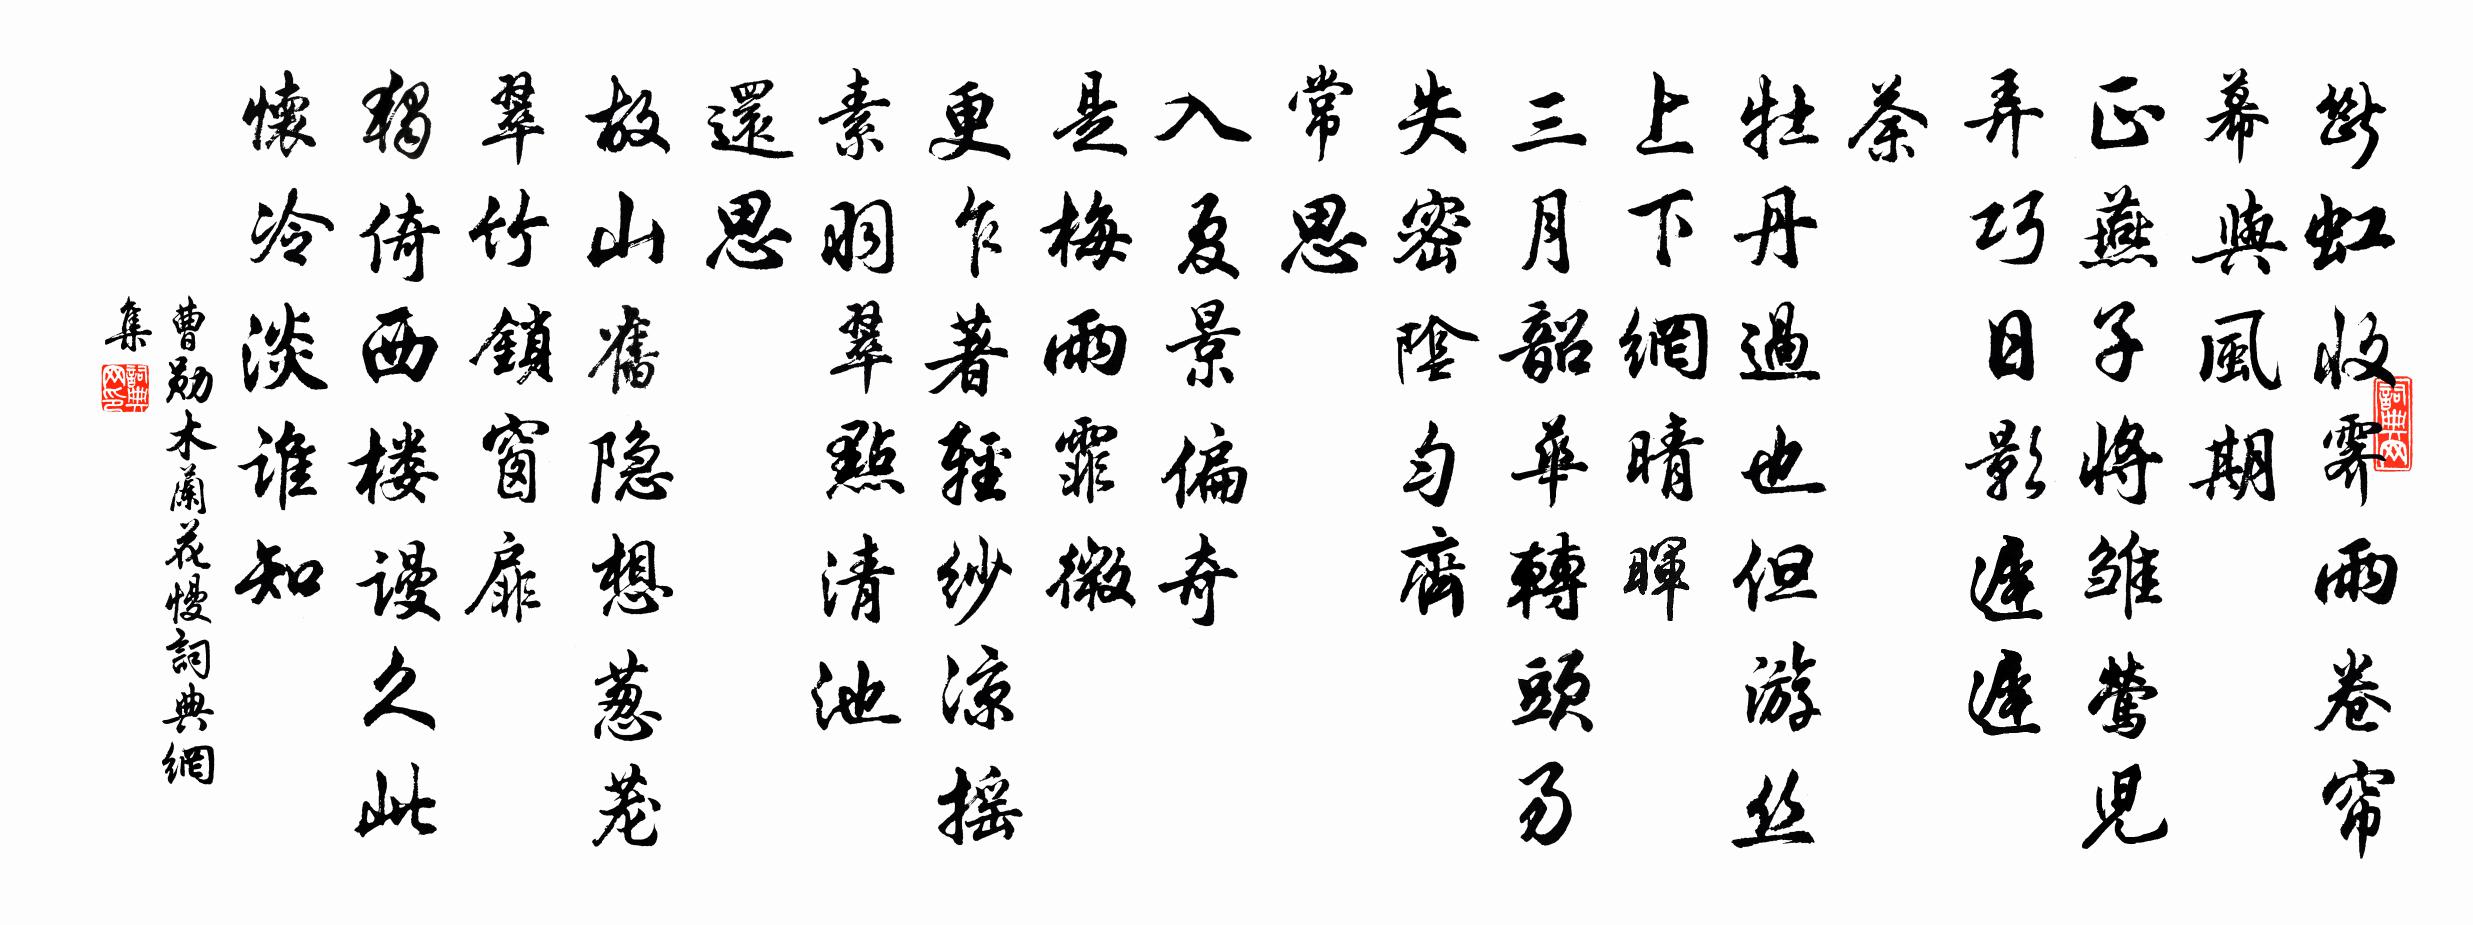 斷虹收霽雨卷帘
幕與風期
正燕子將雏鶯兒
弄巧日影遲遲
荼
牡丹過也但游丝
上下網晴暉
三月韶華轉頭易
失密陰勻齊
常思
入夏景偏奇
是梅雨霏微
更乍著輕紗凉摇
素羽翠點清池
還思
故山舊隐想葱蘢
翠竹鎖窗扉
獨倚西楼谩久此
懷冷淡谁知
曹勛木蘭花慢詞典網
集
詞典网
詞典网印